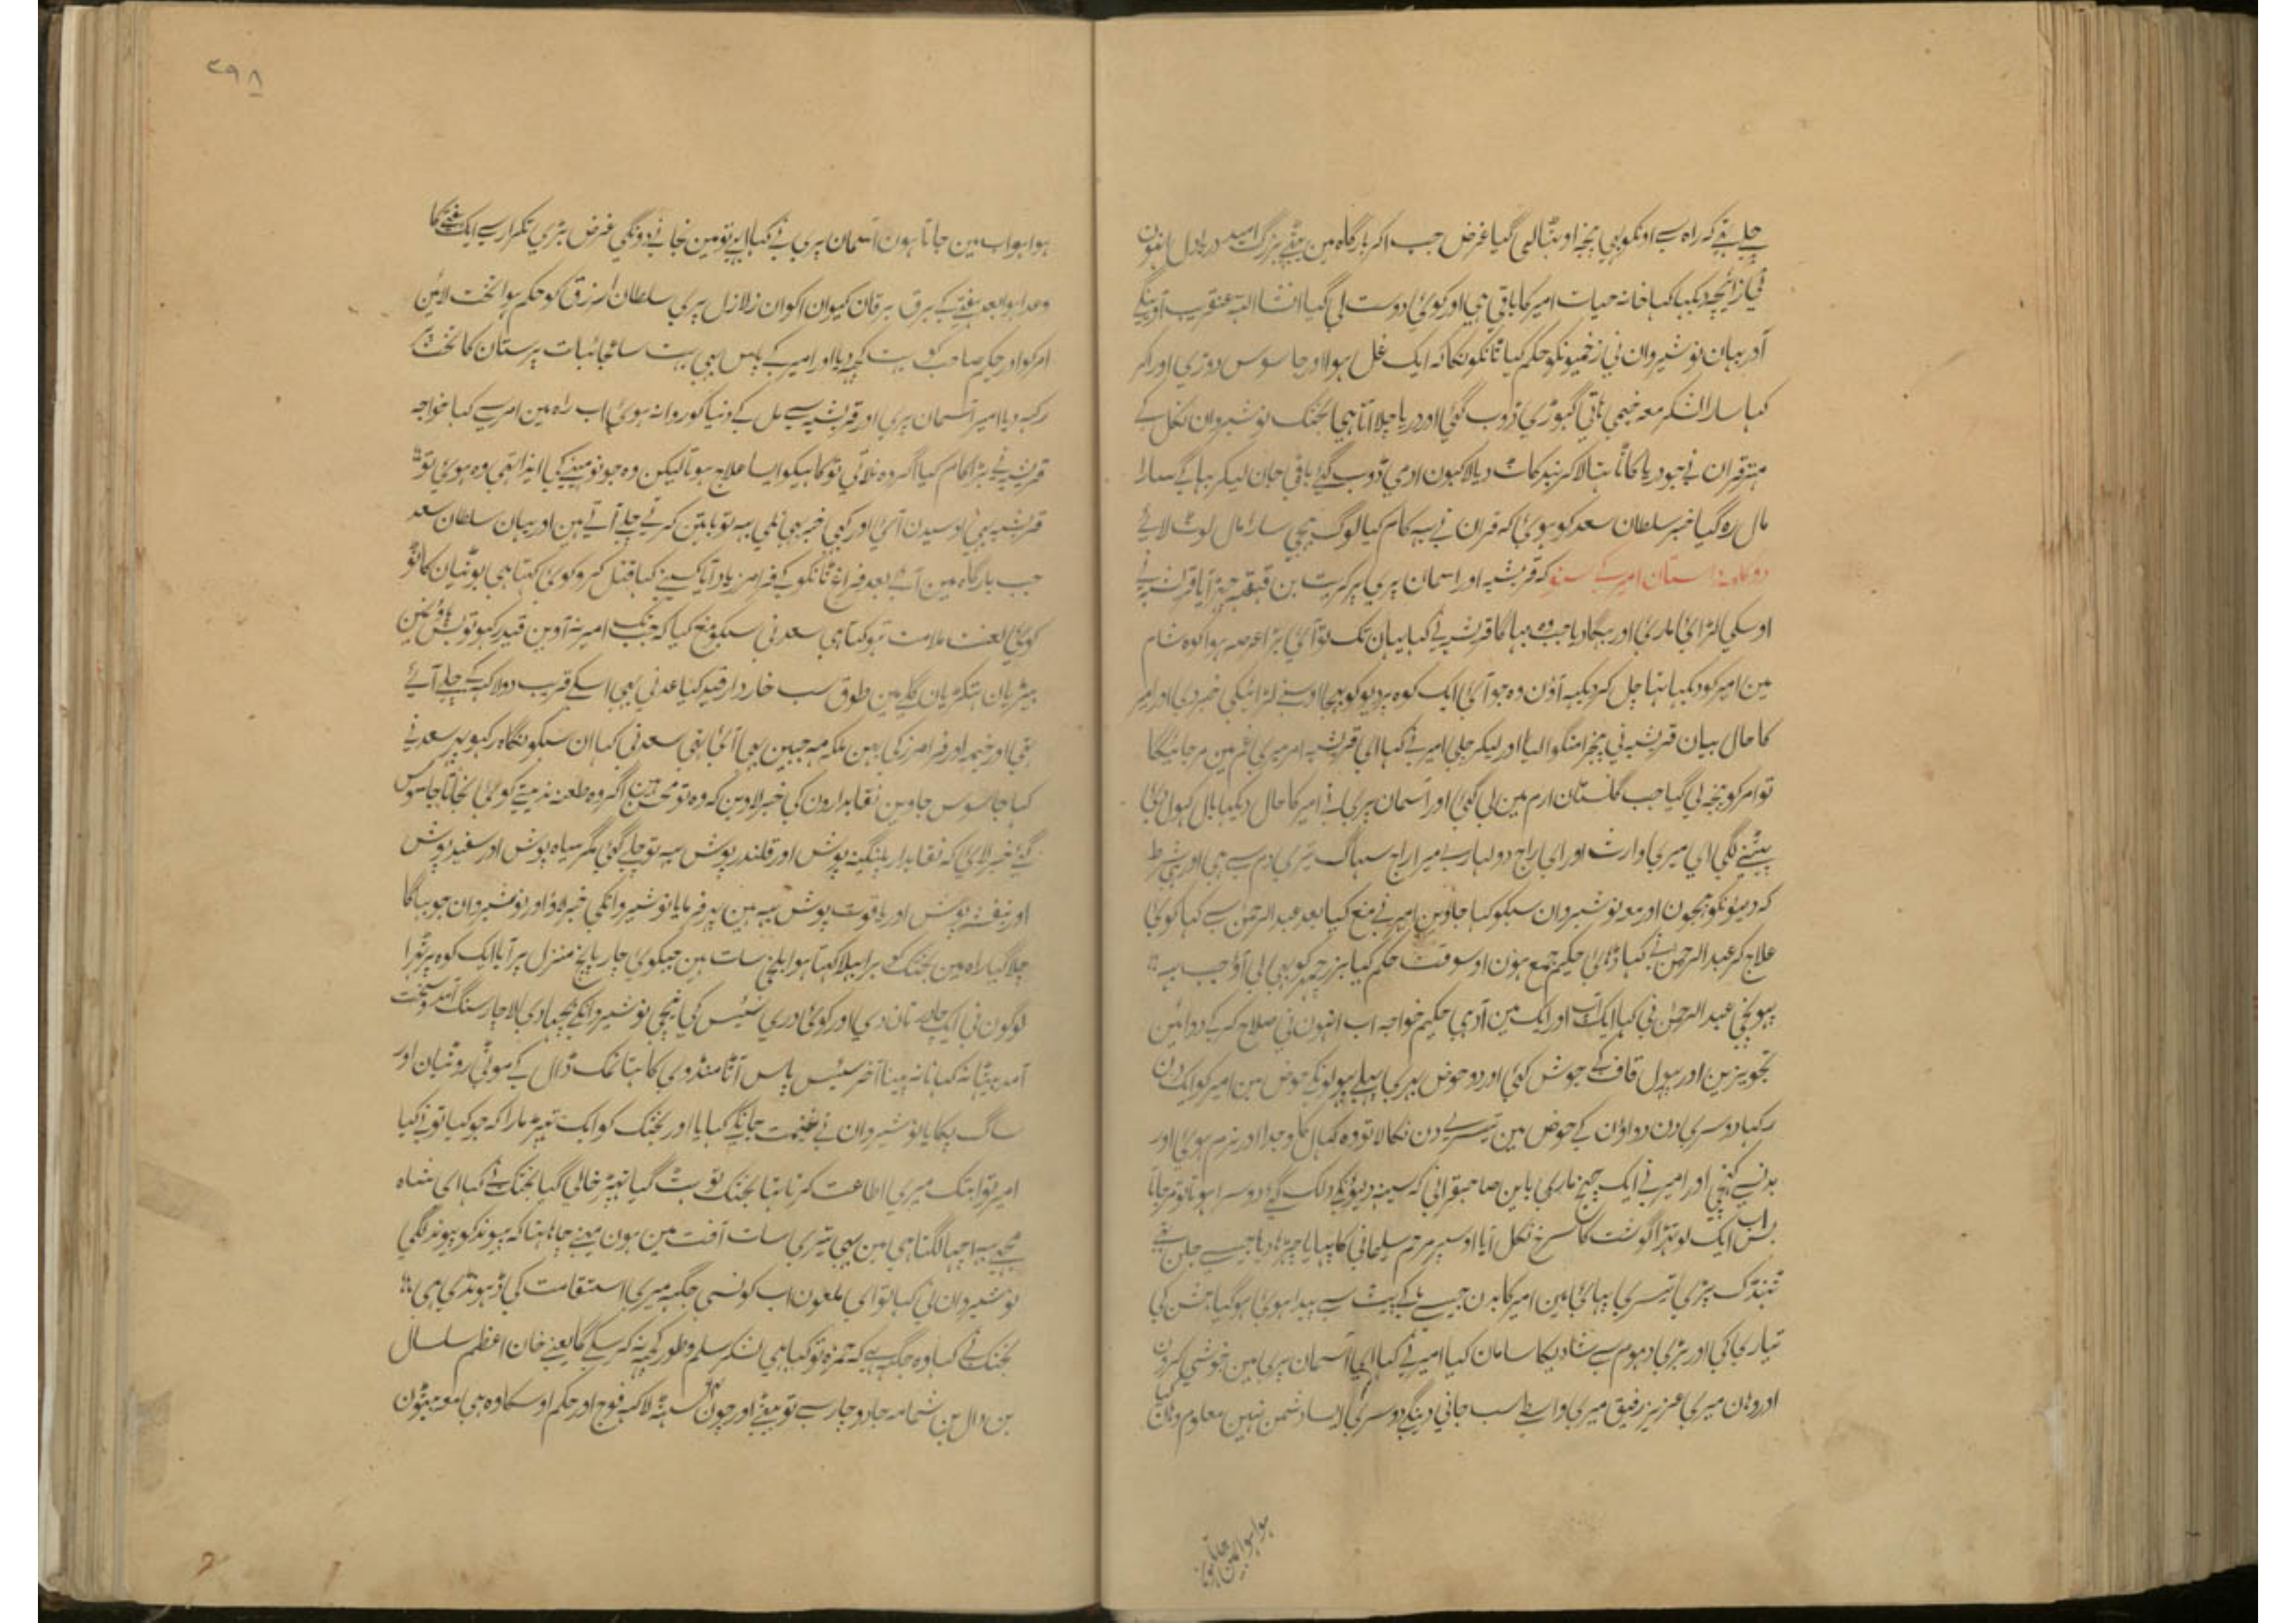 چلے تھے کہ راہ سے اونکو بھی پنجہ اوٹھا لی گیا غرض جب اکر بارگاہ مین بیٹھے بزرگ امید در یادل انہون
نی زائچہ دیکہا کہا خانہ حیات امیر کا باقی ہی اور کوئی دوست لی گیا انشا اللہ عنقریب آوینگے
آدر بیان نوشیروان نی زخمیونکو حکم کیا ٹانکونکا کہ ایک غل ہوا اور جاسوس دوڑی اور اکر
کہا سارا لشکر معہ خیمی ہاتی گہوڑی ڈوب گئی اور دریا چلا اتا ہی بختک نوشیروان نکل کے
مہتر قران نے جو دریا کاٹا تہا لاکر بند کاٹ دیا لاکہون ادمی ڈوب گئے باقی جان لیکر بہاگے سارا
مال رہ گیا خبر سلطان سعد کو ہوئی کہ قران نے یہ کام کیا لوگ بھیجی سارا مال لوٹ لائے
دو کلمہ داستان امیر کے سنو کہ قریشیہ اور اسمان پری پر کریت بن قہقہہ چڑہ آیا قریشیہ نے
اوسکی لڑائی ماری اور بہگا دیا جب وہ بہاگا قریشیہ نے کہا یہان تک تو آئی بڑا عرصہ ہوا کوہ شام
مین امیر کو دیکہا تہا چل کر دیکہہ آؤن وہ جو آئی ایک کوہ پر دیو کو بھیجا اوسنے لڑائیکی خبر دی اور امیر
کا حال بیان قریشیہ نی پنجرا منگوا لیا اور لیکر چلی امیر نے کہا ای قریشیہ امر میری غم مین مر جائیگا
تو امر کو پنجہ لی گیا جب گلستان ارم مین لی گئی اور اسمان پری نے امیر کا حال دیکہا بال کہول دئی
پیٹنے لگی ای میری وارث اور ای راج دولہارے میرا راج سہاگ تیری دم سے ہی اور شرط
کہ دیونکو بھیجون اور معہ نوشیروان سبکو کہا جاوین امیر نے منع کیا بعد عبد الرحمن سے کہا کوئی
علاج کر عبد الرحمن نے کہا ڈہائی حکیم جمع ہون اوسوقت حکم کیا بزرجمہر کو بھی لی آؤ جب یہ
پہونچی عبد الرحمن نی کہا ایک آپ اور ایک مین آدہی حکیم خواجہ اب انہون نی صلاح کر کے دوائین
تجویز کین اور پہول قاف کے جوش کئی اور دو حوض بہری پہلے پہولونکے حوض مین امیر کو ایک دن
رکہا دوسری دن دواؤن کے حوض مین تیسرے دن نکالا تو وہ کہال وجدا اور نرم ہوئی اور
بدنسے کہنچی اور امیر نے ایک چیخ ماری باین صاحبقرانی کہ سینہ دیونکے دہلک گئے دوسرا ہوتا تو مر جاتا
بس اب ایک لوتہڑا گوشت کا سرخ نکل آیا اوسپر مرہم سلیمانی کا پہایا چڑہادیا جیسے جلن تھے
ٹہنڈک پڑی تیسری پہائی مین امیر کا بدن جیسے ماکے پیٹ سے پیدا ہوئی ہو گیا جشن کی
تیاری کی اور بڑی دہوم سے شادیکا سامان کیا امیر نے کہا ای آسمان پری مین خوشی کرون
اور وہان میری عزیز رفیق میری واسطے سب جانی دینگے دوسری ایسا دشمن نہین معلوم وہان کیا
ہوا ہو اب مین جاتا ہون
٣٩٨
ہوا ہو اب مین جاتا ہون آسمان پری نے کہا ابھے تو مین نجانے دونگی غرض بڑی تکرار سے ایک ہفتے کا
وعدا ہوا بعد ہفتے کے برق برقان کیوان اکوان زلازل پری سلطان ارزق کو حکم ہوا تخت لائین
امر کو اور حکیم صاحب کو بہت کچہ دیا اور امیر کے پاس بھی بہت سا عجائبات پرستان کا تخت پر
رکہہ دیا امیر آسمان پری اور قریشیہ سے مل کے دنیا کو روانہ ہوئی اب راہ مین امر سے کہا خواجہ
قریشیہ نے بڑا کام کیا اگر وہ نلاتی تو کاہیکو ایسا علاج ہوتا لیکن وہ جو نو مہینے کی ایذا تھی وہ ہوئی تو
قریشیہ بھی اوسیدن آئی اور کچی خبر بھی نلی یہ تو باتین کرتے چلے آتے ہین اور بیان سلطان سعد
جب بارگاہ مین آئے بعد فراغ ٹانکون کے فرامرز یاد آیا کسینے کہا قتل کرو کوئی کہتا ہی بوٹیان کاٹو
کوئی لعنت ملامت تو کہتا ہی سعد نی سبکو منع کیا کہ جب تک امیر نہ آوین قید رکہو تو پس پاؤنمین
بیڑیان ہتکڑیان گلے مین طوق سب خار دار قید کیا عدنی بھی اسکے قریب دولاکہہ کے چلے آئے
تھی اور خیمہ اور فرامرز کی بہن ملکہ مہ جبین بھی آئی تھی سعدنی کہا ان سبکو نگاہ رکہو پہر سعد نے
کہا جاسوس جاوین نقابدارون کی خبر لاوین کہ وہ تو محسن ہین اگر وہ طعنہ ندیتے کوئی نجاتا جاسوس
گئے خبر لائی کہ نقابدار پلنگینہ پوش اور قلندر پوش یہ تو چلے گئی مگر سیاہ پوش اور سفید پوش
اور بنفشہ پوش اور یاقوت پوش یہ ہین پہر فرمایا نوشیروانکی خبر لاؤ اور نوشیروان جو بہاگا
چلا گیا راہ مین بختک کو برا بہلا کہتا ہوا بلخ سات ہین چیکوی چار پانچ منزل پر آیا ایک کوہ پر ٹہرا
لوگون نی ایک چادر تان دی اور کوئی دری سئیس کی نیچی نوشیروانکے بچہا دی لاچار سنگ آمد و سخت
آمد بیٹہا نہ کہانا نہ پینا آخر سئیس پاس آٹا منڈوی کا تہا نمک ڈال کے موٹی روٹیان اور
ساگ پکایا نوشیروان نے غنیمت جانکے کہایا اور بختک کو ایک تہپڑ مارا کہ جو کیا تونے کیا
امیر تو ابتک میری اطاعت کرتا تہا بختک تو ہٹ گیا تہپڑ خالی گیا بختک نے کہا ای شاہ
مجہے یہ اچہا لگتا ہی مین بھی تیری سات آفت مین ہون مینے چاہا تہا کہ پیوند کو پیوند لگی
نوشیروان نی کہا تو ای ملعون اب کونسی جگہہ میری استقامت کی ڈہونڈی ہی
بختک نے کہا وہ جگہہ ہے کہ حمزہ تو کیا ہی لشکر سلم و طور کچہہ نہ کر سکے گا یعنے خان اعظم سلسال
بن دال بن شمامہ جادو چار سے تو بیٹے اور چون سٹہ لاکہہ فوج اور حکم اوسکا وہ ہی معہ بیٹون